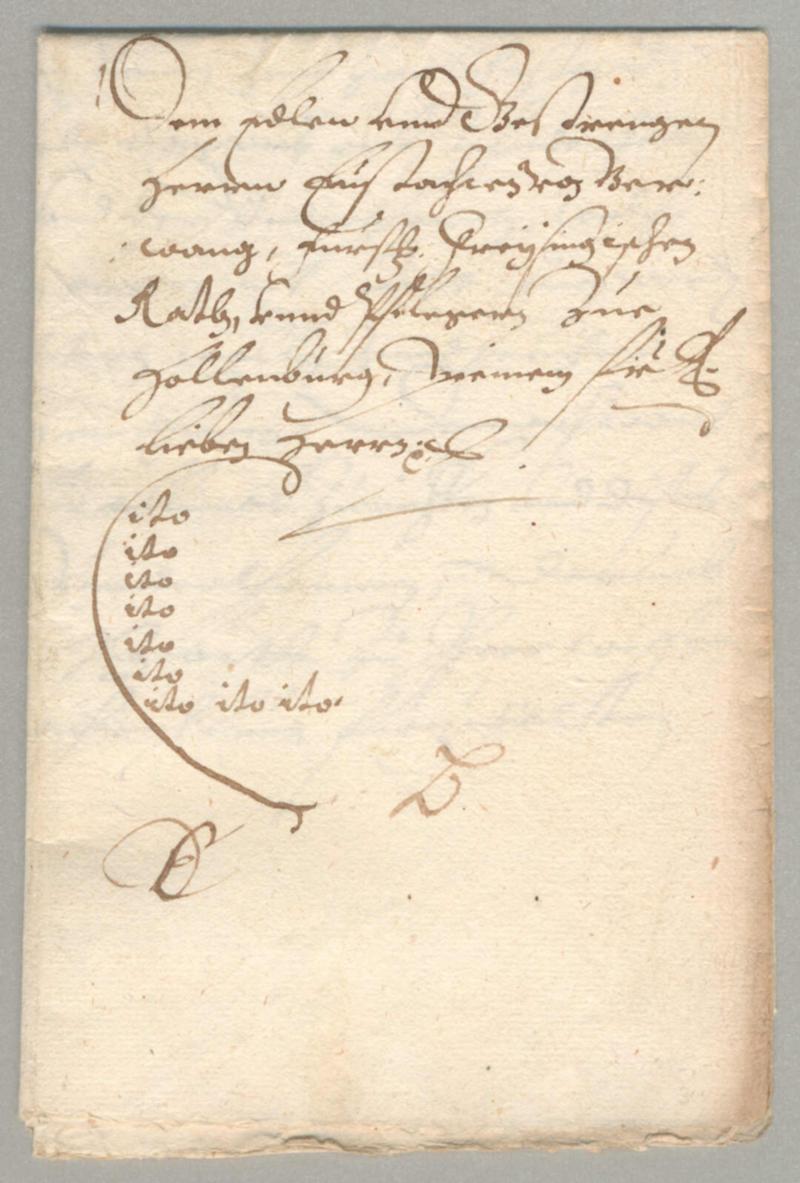 Dem Edlen vnnd Gestrengen
Herrn Eustachien von Ber:
wang, Fürstl: Freysingischen
Rath, vnnd Pflegern zue
Hollenburg, Meinem
lieben Herrn
ito
ito
ito
ito
ito
ito
ito ito ito